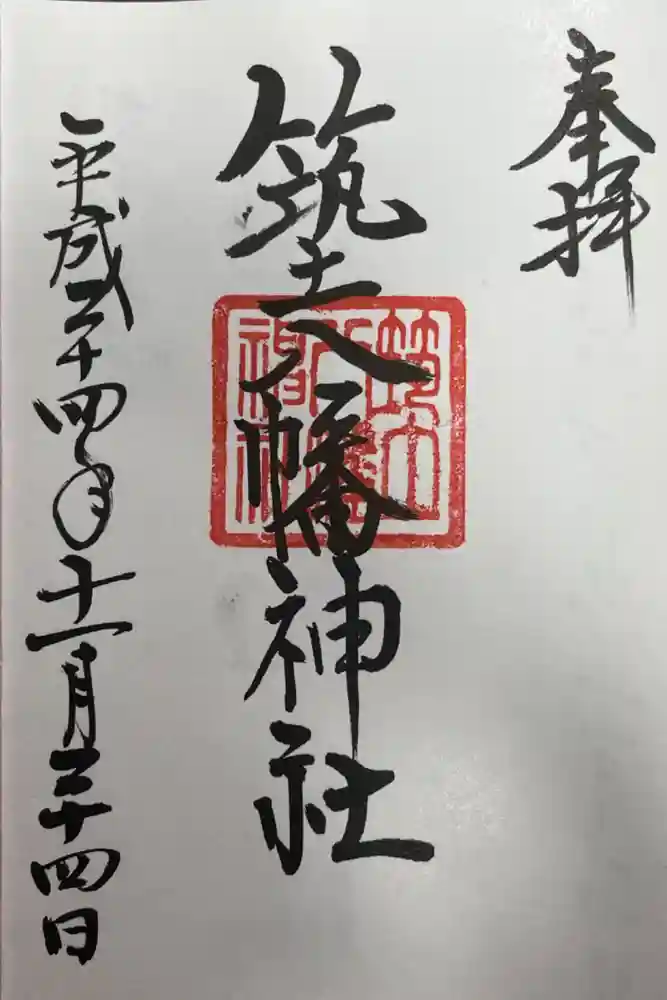 奉拝
筑土八幡神社
筑土八幡神社
平成二十四年十一月二十四日